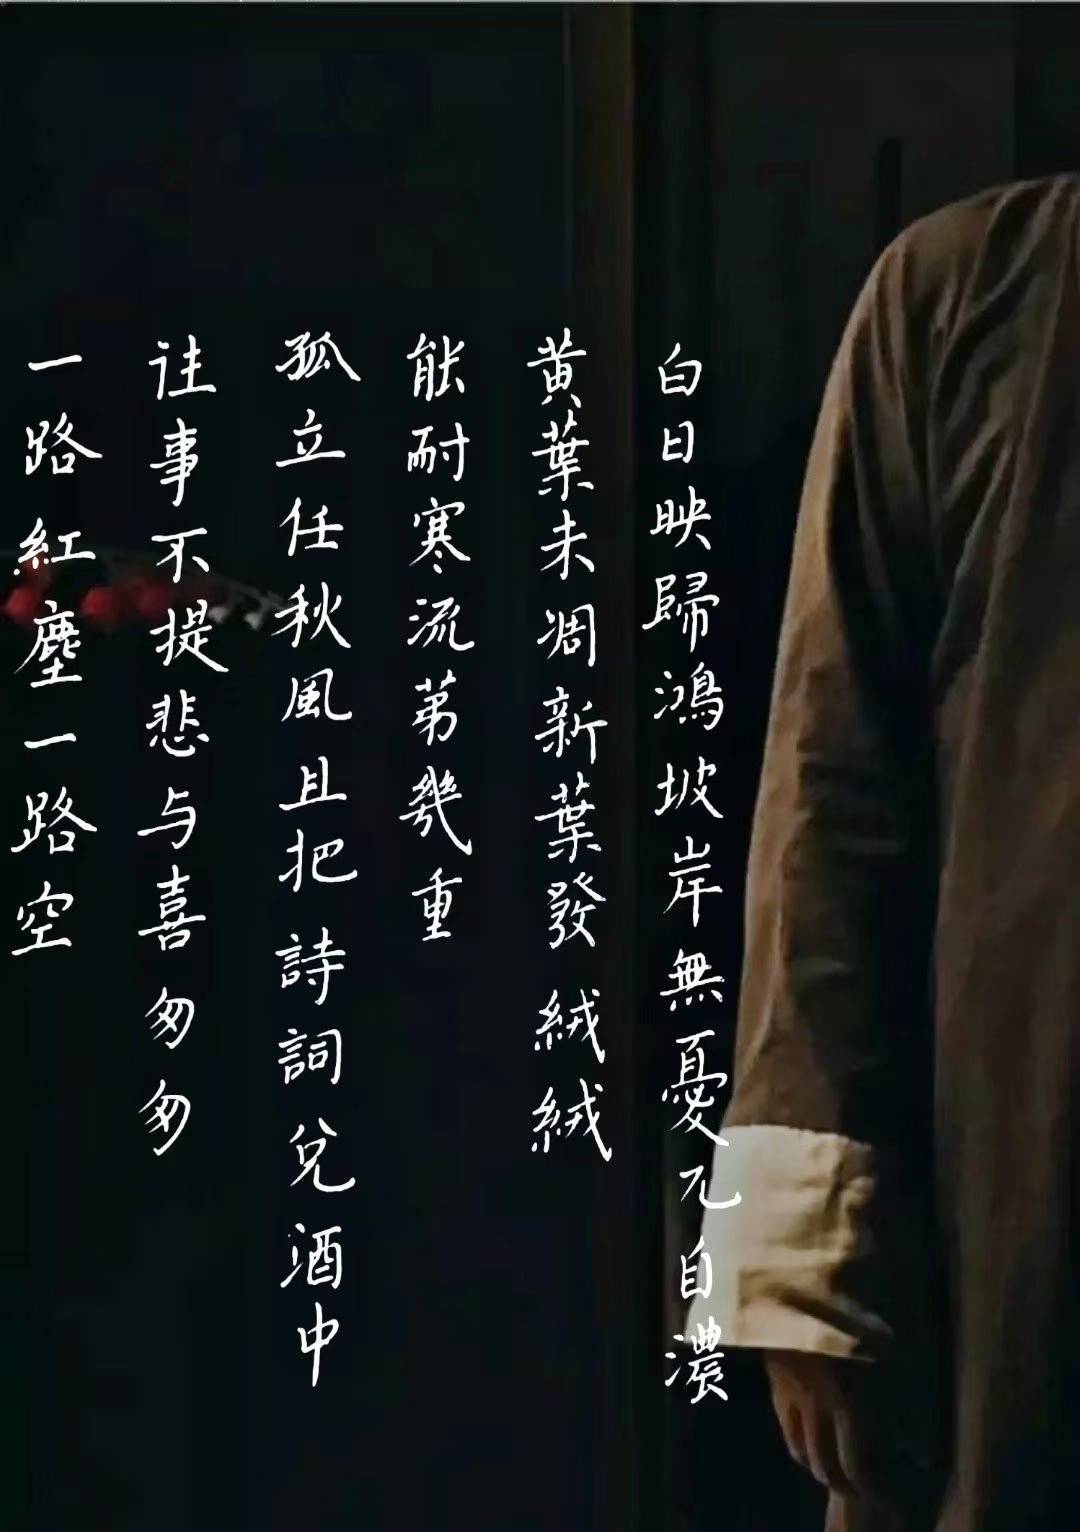 白日映歸鴻坡岸無憂兀自濃
黄葉未凋新葉發絨絨
能耐寒流苐幾重
孤立任秋風且把詩詞兌酒中
往事不提悲与喜匆匆
一路紅塵一路空